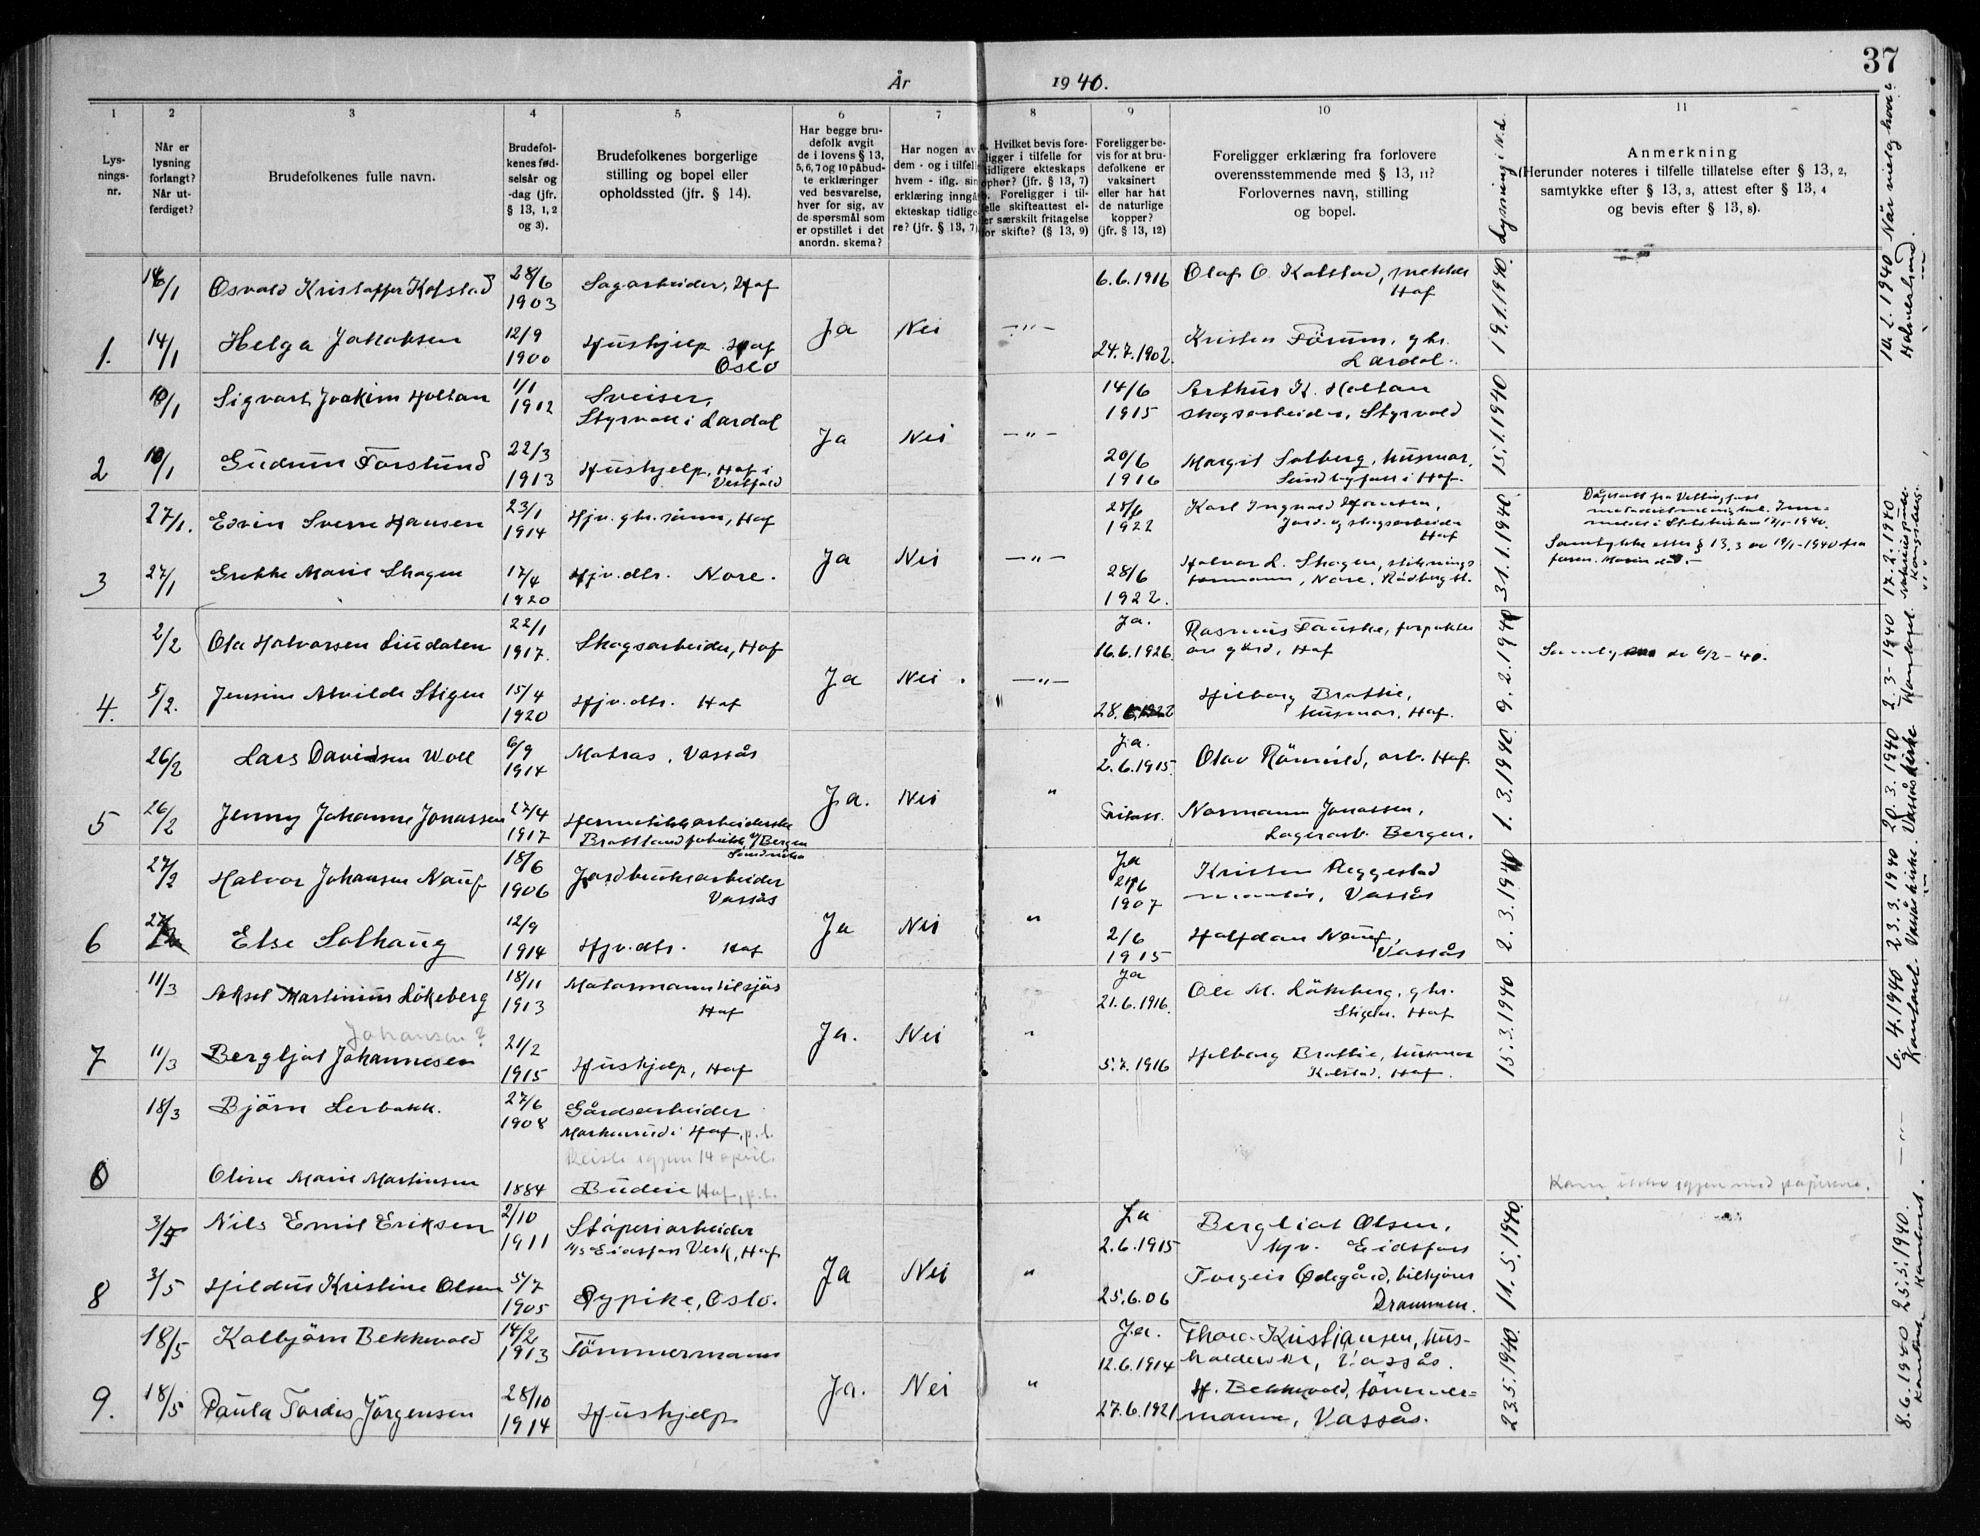 37
År 1940.
1 2 3 4 5 6 7 8 9 10 11
Lysningsnr.
Når er lysning forlangt? Når utferdiget?
Brudefolkenes fulle navn.
Brudefolkenes fødselsår og -dag (jfr. § 13, 1, 2 og 3).
Brudefolkenes borgerlige stilling og bopel eller opholdssted (jfr. § 14).
Har begge brudefolk avgit de i lovens § 13, 5, 6, 7 og 10 påbudte erklæringer ved besvarelse, hver for sig, av de spørsmål som er opstillet i det anordn. skema?
Har nogen av dem - og i tilfelle hvem - iflg. sin erklæring inngått ekteskap tidligere? (jfr. § 13, 7)
a. Hvilket bevis foreligger i tilfelle for tidligere ekteskaps ophør? (jfr. § 13, 7) b. Foreligger i tilfelle skifteattest eller særskilt fritagelse for skifte? (§ 13, 9)
Foreligger bevis for at brudefolkene er vaksinert eller har hat de naturlige kopper? (jfr. § 13, 12)
Foreligger erklæring fra forlovere overensstemmende med § 13, 11? Forlovernes navn, stilling og bopel.
Anmerkning
(Herunder noteres i tilfelle tillatelse efter § 13, 2, samtykke efter § 13, 3, attest efter § 13, 4 og bevis efter § 13, 8).
1. 14/1 Osvald Kristoffer Kolstad 28/6 1903 Sagarbeider, Hof 6.6.1916 Olaf O. Kolstad, Hof
14/1 Helga Jakobsen 12/9 1900 Hushjelp Hof Oslo Ja Nei —"— 24.7.1902. Kristen Förum, gbr. Lardal. 19.1.1940.
2 10/1 Sigvart Joakim Holtan 1/1 1912 Sveiser, Styrvoll i Lardal 14/6 1915 Arthur K. Holtan skogsarbeider, Styrvold
10/1 Gudrun Forslund 22/3 1913 Hushjelp, Hof i Vestfold Ja Nei —"— 20/6 1916 Margit Solberg, husmor, Sundbyfoss i Hof. 15.1.1940
3 27/1. Edvin Sverre Hansen 23/1 1914 Hjv. gbr. sønn, Hof 1922 Karl Ingvald Hansen, Jord- og skogsarbeider Hof
27/1 Grethe Marie Skogen 17/4 1920 Hjv. dtr. Nore. Ja Nei —"— 28/6 1922. Halvor L. Skogen, stiknings formann, Nore, Rödberg st. 31.1.1940
Samtykke etter § 13,3 av 19/1-1940 fra faren. Moren död.—
4. 2/2 Ola Halvorsen Lindalen 22/1 1917. Skogsarbeider, Hof Ja. 16.6.1926. Rasmus Fauske, forpakter av gård, Hof
5/2. Jensine Alvilde Stigen 15/4 1920 Hjv. dtr. Hof Ja Nei. —"— Hilborg Brattie, husmor, Hof. 9.2.1940
Samtykke av 6/2-40.
5 26/2 Lars Davidsen Woll 6/9 1914 Matros, Vassås Ja. 2.6.1915. Olav Römuld, arb. Hof.
26/2 Jenny Johanne Jonassen 27/4 1917 Hermetikkarbeiderske Ja. Nei " Normann Jonassen, Lagerarb. Bergen. 1.3.1940
6 27/2 Halvor Johansen Nauf 18/6 1906 Jordbruksarbeider Vassås Ja 1907 Kristen Reggestad Vassås
27/2 Else Solhaug 12/9 1914 Hjv. dtr. Hof Ja Nei " 2/6 1915 Halfdan Nauf, Vassås 2.3.1940
7 11/3 Aksel Martinius Lökeberg 18/11 1913 Motormann tilsjös Hof Ja 21.6.1916. Ole M. Lökeberg, gbr. Stigen. Hof
Johansen?
11/3 Bergljot Johannesen 21/2 1915 Hushjelp, Hof Ja. Nei " 5.7.1916 Hilborg Brattie, husmor Kolstad, Hof. 15.3.1940
8 18/3 Björn Lerbakk. 27/6 1908 Gårdsarbeider Hof, p.t.
Reiste igjen 14 april.
Oline Marie Martinsen 1884 Budeie Hof, p.t.
Kom ikke igjen med papirene.
8 3/5 Nils Emil Eriksen 2/10 1911 Støperiarbeider A/S Eidsfos Verk, Hof Ja 2.6.1915 Bergliot Olsen, hjv. Eidsfoss
3/5 Hildus Kristine Olsen 5/7 1905 Sypike, Oslo. Ja Nei " 25.6.06 Torgeir Ødegård, bilkjörer Drammen. 11.5.1940
9. 18/5 Kolbjörn Bekkevold 14/2 1913 Tömmermann Ja. 12.6.1914 Thora Kristiansen, husholderske, Vassås.
18/5 Paula Tordis Jörgensen 28/10 1914 Hushjelp Ja. Nei " 27.6.1921 H. Bekkevold, tömmermann, Vassås. 23.5.1940
Lysning i N.L.
Når vielse
Holmestrand.
17.2.1940
Kongsberg.
2.3-1940
20.3.1940 Vassås kirke
23.3.1940 Vassås kirke.
6.4.1940
—"—
25.5.1940.
8.6.1940